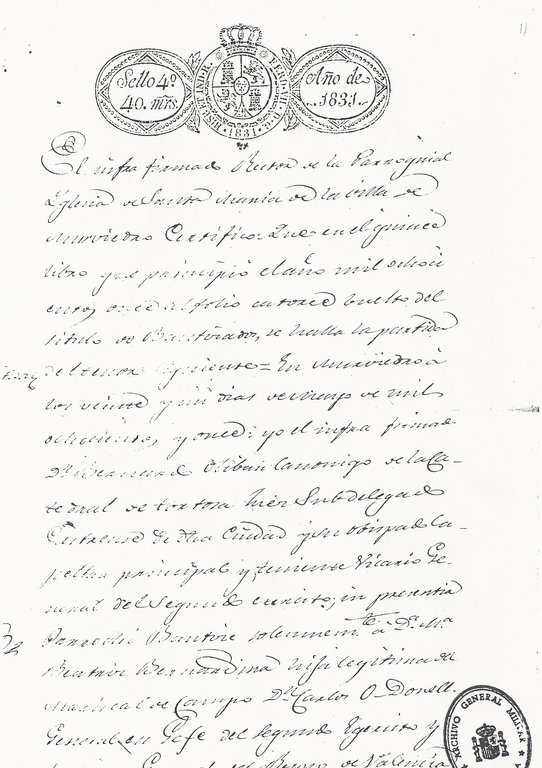 Sello 4º
40. mrs.
HISP. ET IND. R. FERD. VII. D. G. 1831
Año de
1831.
El infra firmado Rector de la Parroquial
Yglesia de Santa Maria de la villa de
Murviedro Certifico: Que en el quinto
libro que principio el año mil ochoci
entos, once al folio catorce buelto del
titulo de Bautizados, se halla la partida
del tenor siguiente = En Murviedro à
los veinte y un dias de Mayo de mil
ochocientos, y once: yo el infra firmado
Dn. Bernardo Oliban Canonigo de la Ca-
tedral de Tortosa Subdelegado
Castrense de dha Ciudad y su obispado Ca-
pellan principal y Teniente Vicario Ge-
neral del Segundo exercito, in presentia
Parrochi Bautice solemnemte. à Da. Ma.
Beatriz Bernardina hija legitima del
Mariscal de Campo Dn. Carlos O-Donell.
General en Gefe del Segundo Egercito y
del Reyno de Valencia
ARCHIVO GENERAL MILITAR